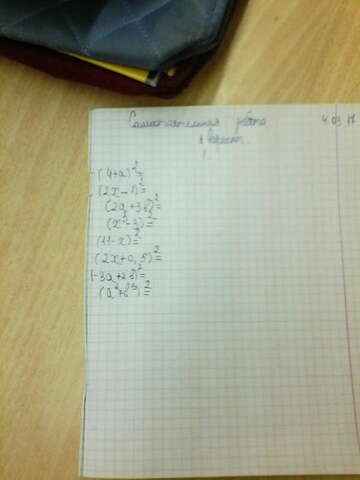 Самостоятельная работа 4.03
1 вариант
(4+a)²=
(2x-1)²=
(2a+3b)²=
(x²-3)²=
(11-x)²=
(2x+0,5)²=
(-3a+2b)²=